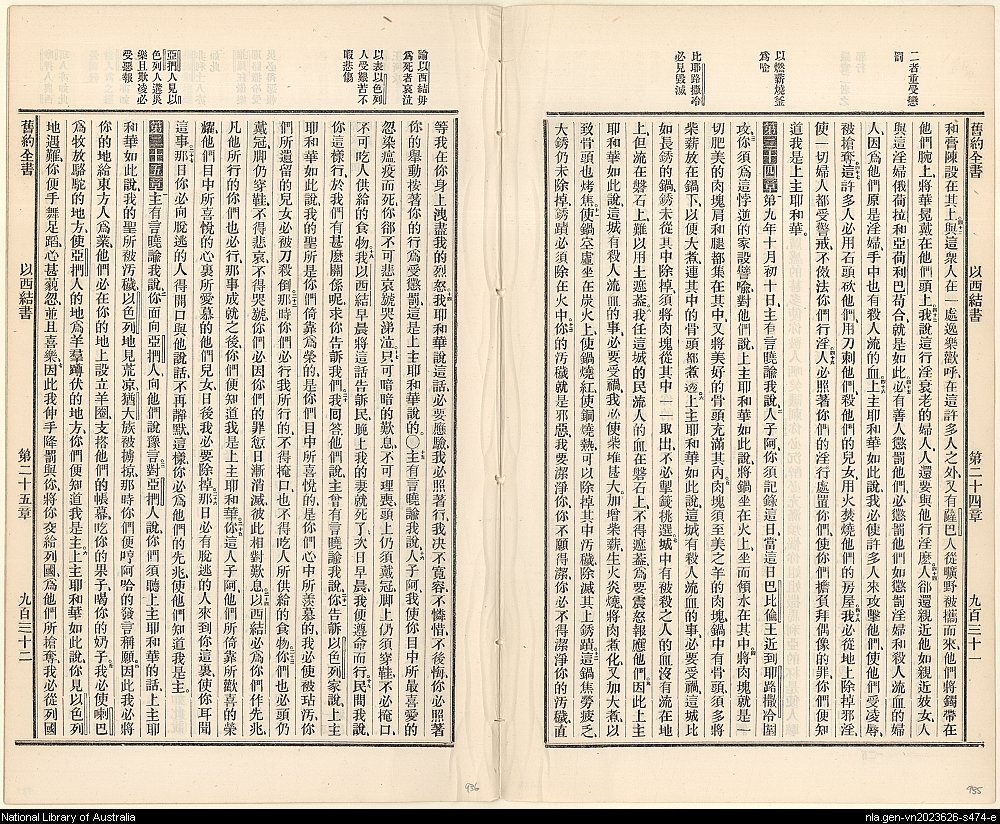 二者重受懲罰
以燃薪燒釜爲喻
比耶路撒冷必見毀滅
舊約全書 以西結書 第二十四章 九百三十一
和膏陳設在其上、與這衆人在一處逸樂歡呼、在這許多人之外、又有薩巴人從曠野被攜而來、他們將鐲帶在
他們腕上、將華冕戴在他們頭上、我說這行淫衰老的婦人、人還要與他行淫麽、人卻還親近他、如親近妓女、人
與這淫婦俄荷拉和亞荷利巴苟合、就是如此、必有善人懲罰他們、必懲罰他們如懲罰淫婦和殺人流血的婦
人、因爲他們原是淫婦、手中也有殺人流的血、上主耶和華如此說、我必使許多人來攻擊他們、使他們受凌辱、
被搶奪、這許多人必用石頭砍他們、用刀刺他們、殺他們的兒女、用火焚燒他們的房屋、我必從地上除掉邪淫、
使一切婦人都受警戒、不做法你們行淫、人必照著你們的淫行處置你們、使你們擔負拜偶像的罪、你們便知
道我是上主耶和華。
第二十四章 第九年十月初十日、主有言曉諭我說、人子阿、你須記錄這日、當這日巴比倫王近到耶路撒冷圍
攻、你須爲這悖逆的家設譬喻、對他們說、上主耶和華如此說、將鍋坐在火上、坐而傾水在其中、將肉塊就是一
切肥美的肉塊、肩和腿、都集在其中、又將美好的骨頭充滿其內、肉塊須至美之羊的肉塊、鍋中有骨頭、須多將
柴薪放在鍋下、以使大煮、連其中的骨頭都煮透、上主耶和華如此說、這城有殺人流血的事、必要受禍、這城比
如長銹的鍋、銹未從其中除掉、須將肉塊從其中一一取出、不必掣籤挑選、城中有被殺之人的血、沒有流在地
上、但流在磐石上、難以用土遮蓋、我任這城殺戮的民人的血在磐石上、不得遮蓋、爲要震怒報應他們、因此上主
耶和華如此說、這城有殺人流血的事、必要受禍、我必使柴堆甚大、加增柴薪、生火炎燒、將肉煮化、又加大煮、以
致骨頭也烤焦、使鍋空虛坐在炭火上、使鍋燒紅、使銅燒熱、可以除掉其中污穢、除滅其上銹蹟、這鍋焦勞疲乏、
大銹仍未除掉、銹蹟必須除在火中、你的污穢就是邪惡、我要潔淨你、你不願得潔、你必不得潔淨你的污穢、直
諭以西結毋爲死者哀泣
以表以色列人受艱苦不暇悲傷
亞捫人見以色列人遭災樂且欺凌必受惡報
等我在你身上洩盡我的烈怒、我耶和華說這話、必要應驗、我必照著行、我決不寬容、不憐惜、不後悔、你必照著
你的舉動、按著你的行爲受懲罰、這是上主耶和華說的。〇主有言曉諭我說、人子阿、我使你目中所最喜愛的
忽染瘟疫而死、你卻不可悲哀號哭涕泣、只可暗暗的歎息、不可理喪、頭上仍戴冠、脚上仍須穿鞋、不必掩口、
不可吃人供給的食物、我以西結早晨將這話告訴民、晚上我的妻就死了、次日早晨、我便遵命而行、民間我說、
你這樣行、於我們有甚麽關係呢、求你告訴我們、我囘答他們說、主曾有言曉諭我說、你告訴以色列家說、上主
耶和華如此說、我的聖所是你們倚靠爲榮的、是你們目中所喜悅的、是你們心中所羨慕的、我必使被玷污、你
們所遺留的兒女必被刀殺倒、那時你們必行我所行的、不得掩口、也不得吃人所供給的食物、你們也必頭仍
戴冠、脚仍穿鞋、不得悲哀、不得哭號、你們必因你們的罪愆日漸消滅、彼此相對歎息、以西結必爲你們作先兆、
凡他所行的你們也必行、那事成就之後、你們便知道我是上主耶和華、你這人子阿、他們所倚靠所歡喜的榮
耀、他們目中所喜悅的、心裏所愛慕的、他們兒女、日後我必要除掉、那日必有脫逃的人來到你這裏、使你耳聞
這事、那日你必向脫逃的人得開口與他說話、不再諭默、這樣你必爲他們的先兆、使他們知道我是主。
第二十五章 主有言曉諭我說、你面向亞捫人、向他們說豫言、對亞捫人說、你們須聽上主耶和華的話、上主耶
和華如此說、我的聖所被污穢、以色列地見荒涼、猶大族被擄掠、那時你們便哼阿哈的發言、稱願、因此我必將
你的地給東方人爲業、他們必在你的地上設立羊圈、支搭他們的帳幕、吃你的果子、喝你的奶子、我必使喇巴
爲牧放駱駝的地方、使亞捫人的地爲羊羣蹲伏的地方、你們便知道我是主、上主耶和華如此說、你見以色列
地遇難、你便手舞足蹈、心甚藐忽、並且喜樂、因此我伸手降罰與你、將你交給列國、爲他們所搶奪、我必從列國
舊約全書 以西結書 第二十五章 九百三十二
936
935
National Library of Australia
nla.gen-vn2023626-s474-e